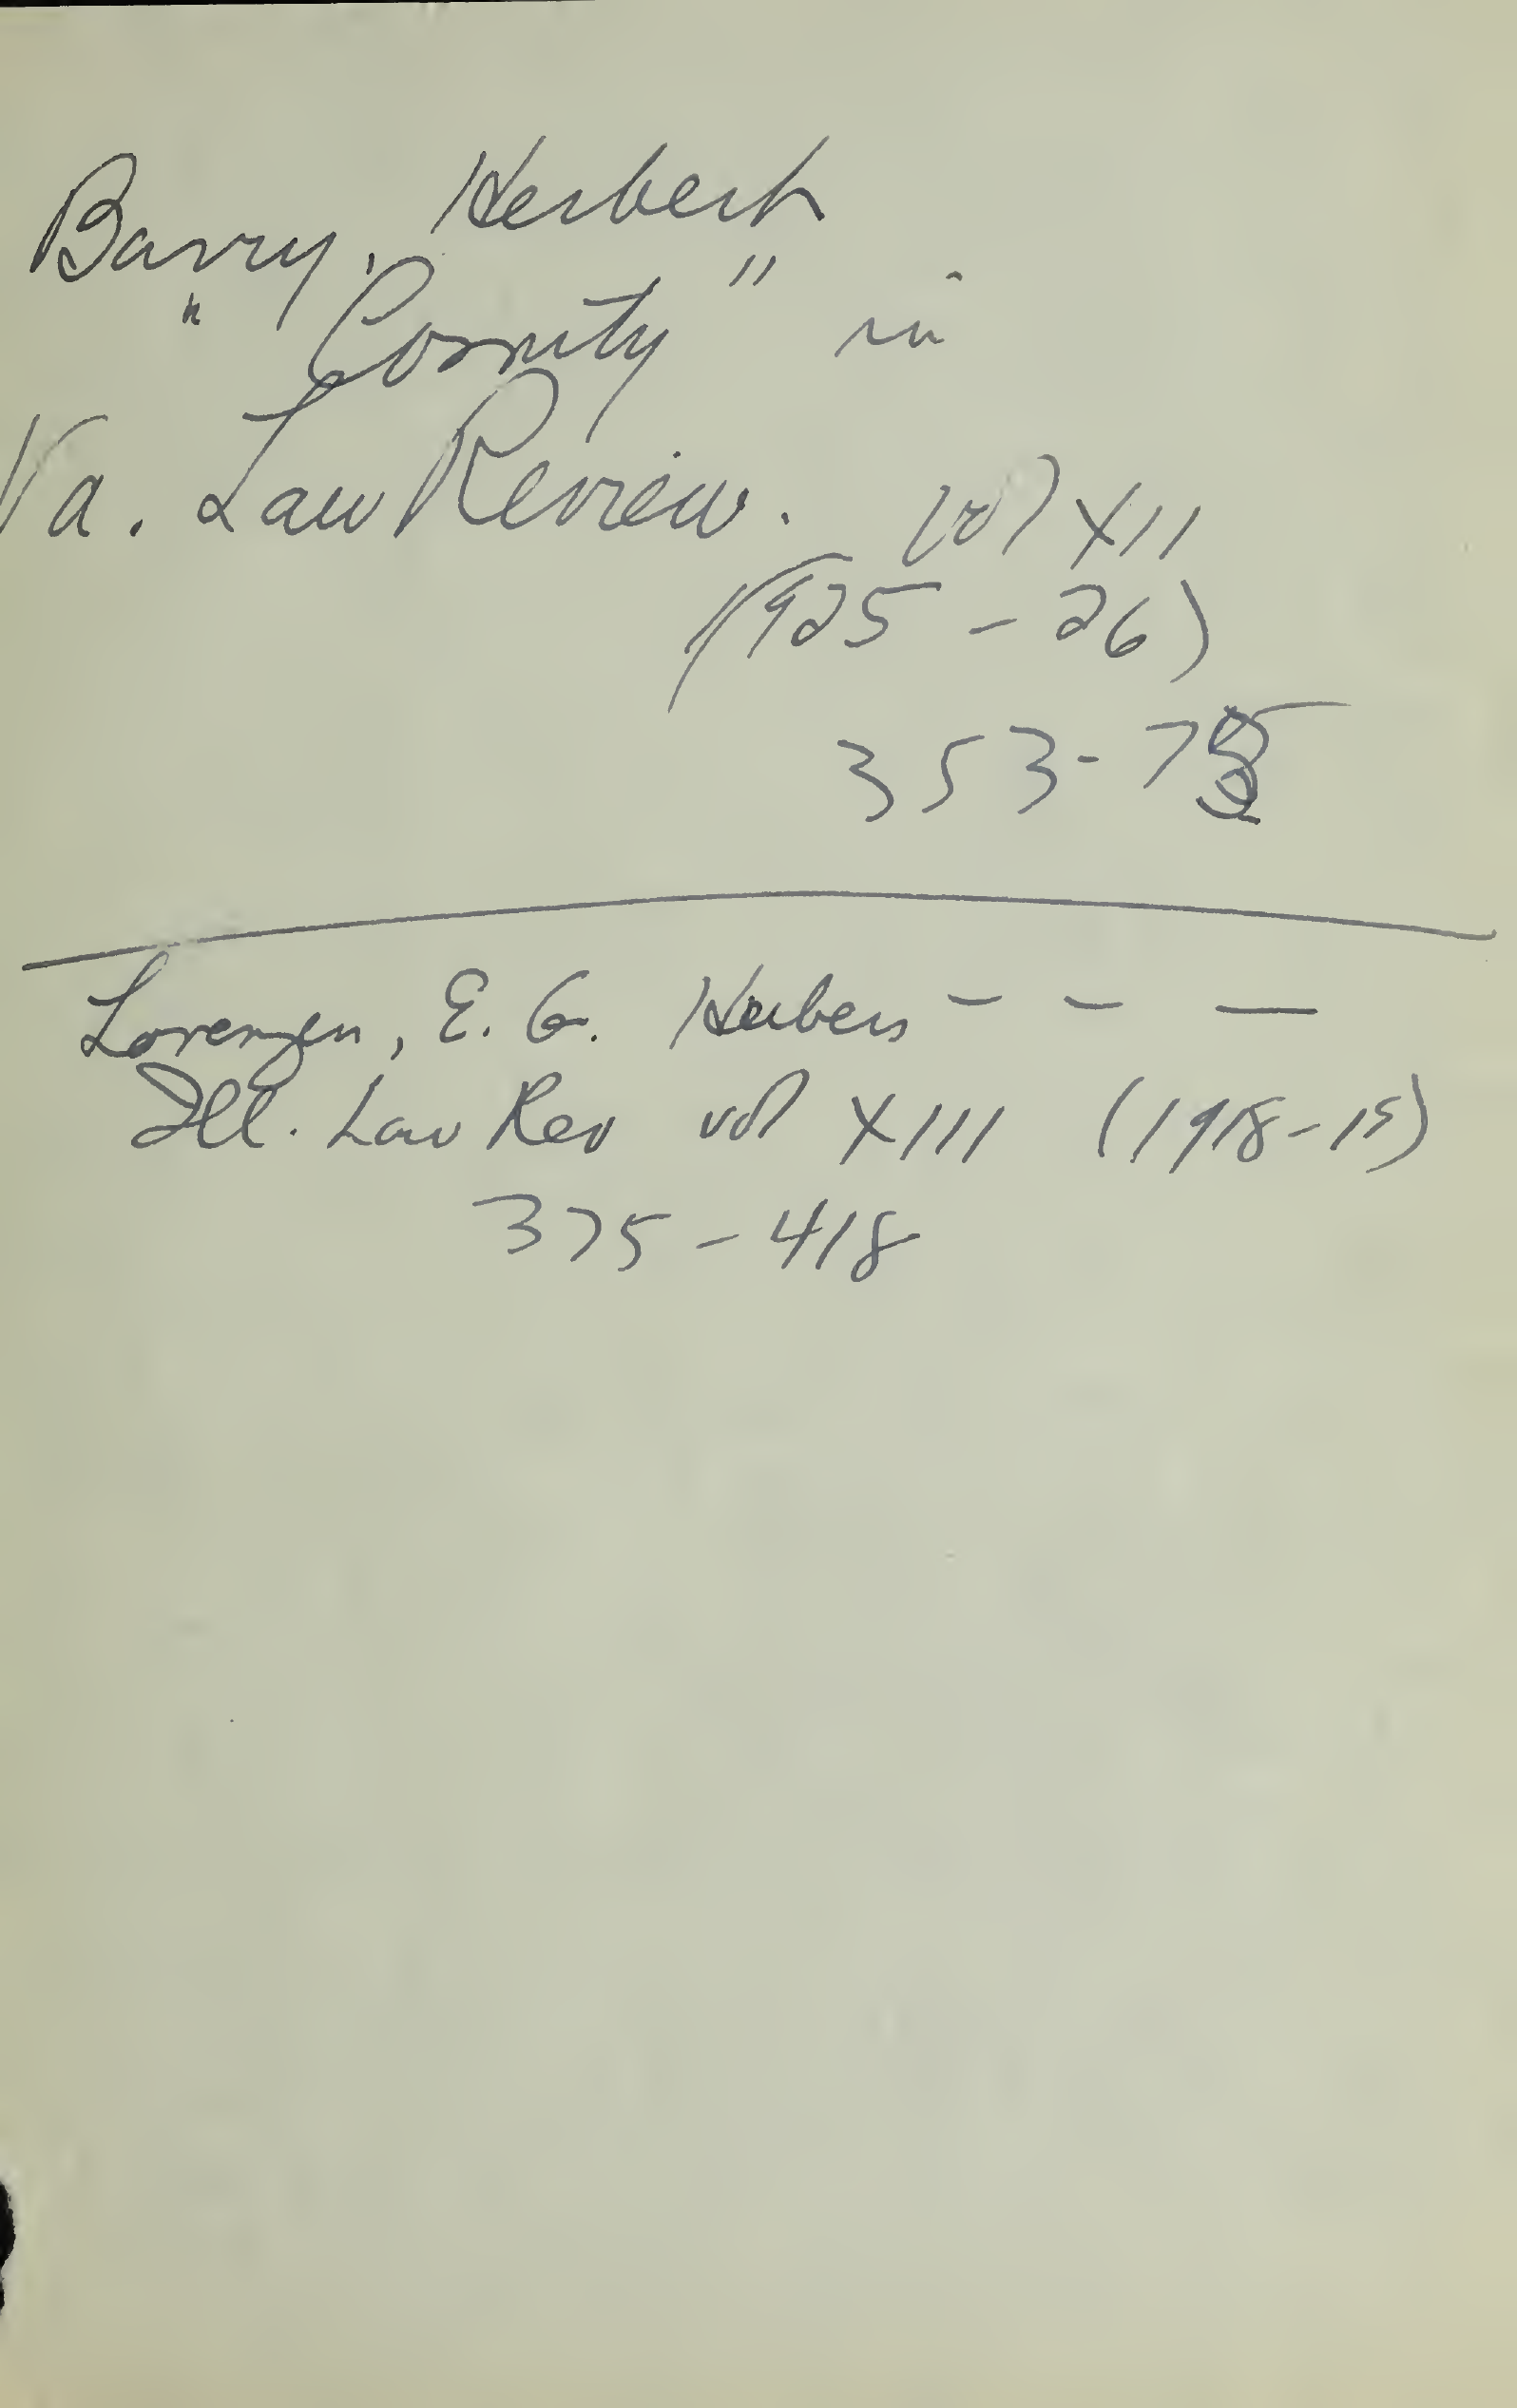 Barry, Herbert
"Comity" in
Va. Law Review. vol XII
(1925-26)
353-75
Lorenzen, E. G. Hubers - - -
Ill. Law Rev vol XIII (1918-19)
375-418